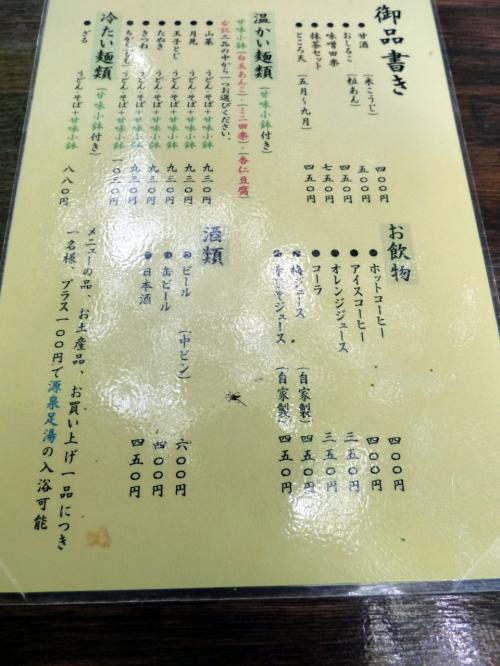 御品書き
●甘酒 (米こうじ) 四〇〇円
●おしるこ (粒あん) 五〇〇円
●味噌田楽 四五〇円
●抹茶セット 七五〇円
●ところ天 (五月～九月) 四五〇円
温かい麺類 (甘味小鉢付き)
甘味小鉢(白玉あんこ)・(ミニ田楽)・(杏仁豆腐)
右記三品の中から一つお選びください。
●山菜 うどん・そば+甘味小鉢 九三〇円
●月見 うどん・そば+甘味小鉢 九三〇円
●玉子とじ うどん・そば+甘味小鉢 九三〇円
●たぬき うどん・そば+甘味小鉢 九三〇円
●きつね うどん・そば+甘味小鉢 九三〇円
うどん・そば+甘味小鉢 一〇三〇円
冷たい麺類 (甘味小鉢付き)
●ざる 八八〇円
お飲物
●ホットコーヒー 四〇〇円
●アイスコーヒー 四〇〇円
●オレンジジュース 三五〇円
●コーラ 三五〇円
●梅ジュース (自家製) 四五〇円
●赤しそジュース (自家製) 四五〇円
酒類
●ビール (中ビン) 六〇〇円
●缶ビール 四〇〇円
●日本酒 四五〇円
メニューの品、お土産品、お買い上げ一品につき
一名様、プラス一〇〇円で源泉足湯の入浴可能